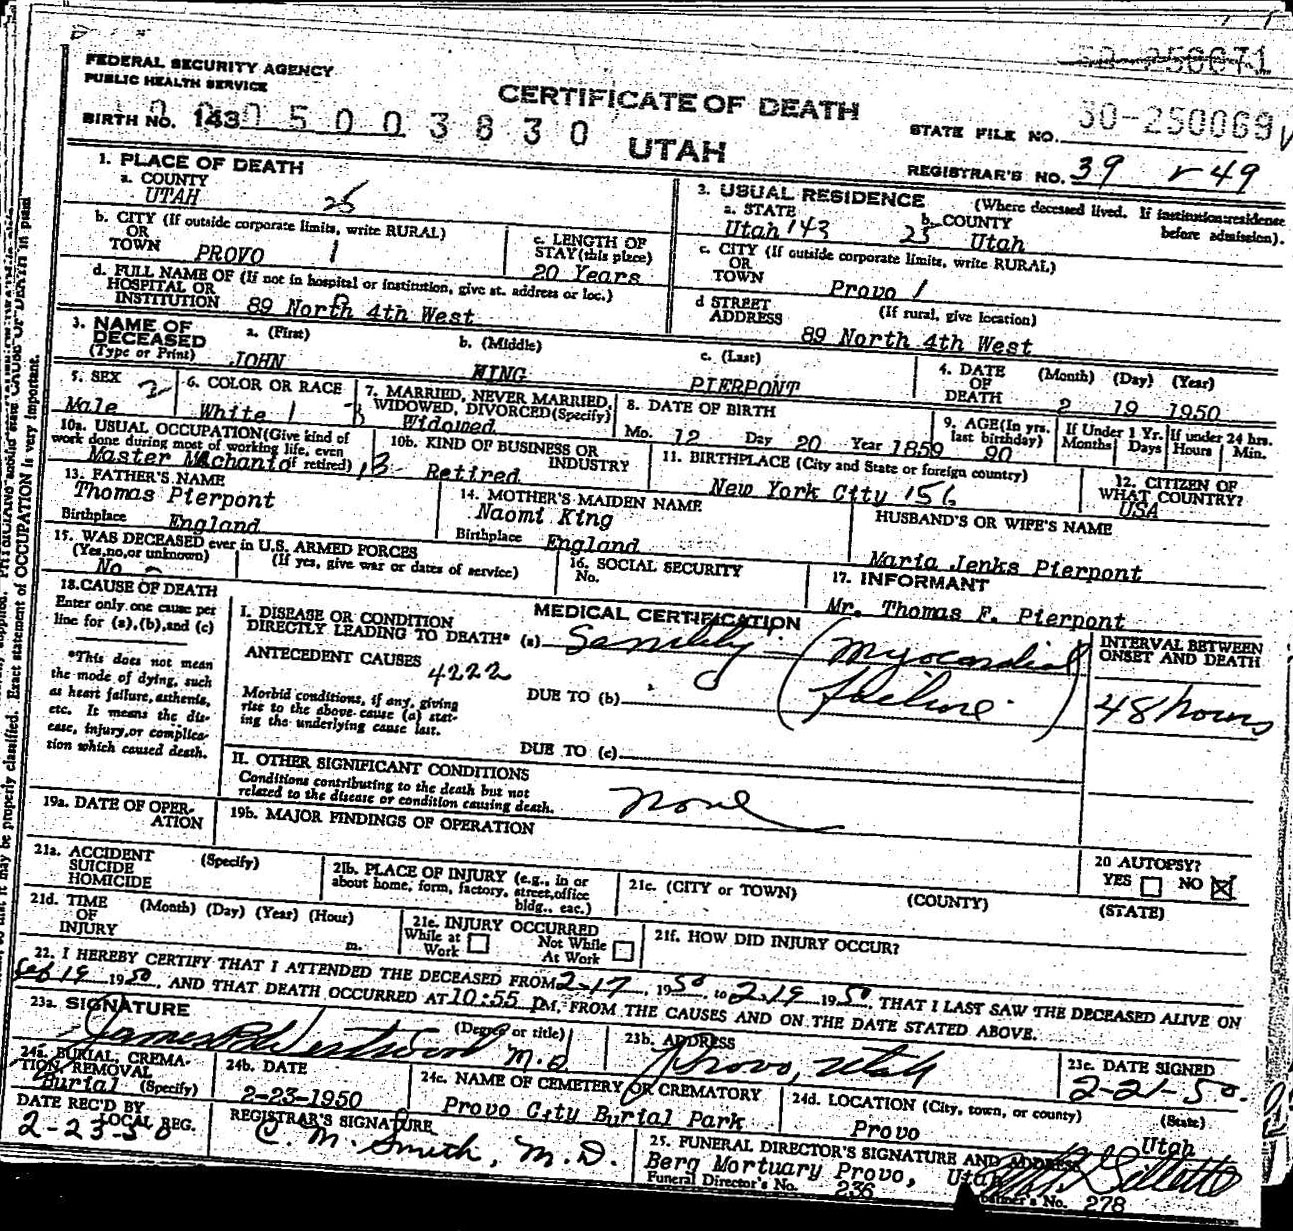 50-250071
FEDERAL SECURITY AGENCY
PUBLIC HEALTH SERVICE
CERTIFICATE OF DEATH
BIRTH NO. 143 0 5 0 0 3 8 3 0
UTAH
STATE FILE NO. 50-250069
REGISTRAR'S NO. 39 49
1. PLACE OF DEATH
a. COUNTY
UTAH 25
b. CITY (If outside corporate limits, write RURAL)
OR
TOWN PROVO 1
c. LENGTH OF
STAY (this place)
20 Years
d. FULL NAME OF (If not in hospital or institution, give st. address or loc.)
HOSPITAL OR
INSTITUTION 89 North 4th West
2. USUAL RESIDENCE (Where deceased lived. If institution:residence
before admission).
a. STATE
Utah 143
b. COUNTY
25 Utah
c. CITY (If outside corporate limits, write RURAL)
OR
TOWN Provo 1
d STREET (If rural, give location)
ADDRESS
89 North 4th West
3. NAME OF
DECEASED
(Type or Print)
a. (First)
JOHN
b. (Middle)
KING
c. (Last)
PIERPONT
4. DATE (Month) (Day) (Year)
OF
DEATH 2 19 1950
5. SEX
Male 2
6. COLOR OR RACE
White 1
7. MARRIED, NEVER MARRIED,
WIDOWED, DIVORCED (Specify)
3 Widowed
8. DATE OF BIRTH
Mo. 12 Day 20 Year 1859
9. AGE (In yrs.
last birthday)
90
If Under 1 Yr.
Months Days
If under 24 hrs.
Hours Min.
10a. USUAL OCCUPATION (Give kind of
work done during most of working life, even
if retired)
Master Machanic
10b. KIND OF BUSINESS OR
INDUSTRY
Retired
11. BIRTHPLACE (City and State or foreign country)
New York City 156
12. CITIZEN OF
WHAT COUNTRY?
USA
13. FATHER'S NAME
Thomas Pierpont
Birthplace England
14. MOTHER'S MAIDEN NAME
Naomi King
Birthplace England
HUSBAND'S OR WIFE'S NAME
Maria Jenks Pierpont
15. WAS DECEASED ever in U.S. ARMED FORCES
(Yes,no,or unknown) (If yes, give war or dates of service)
No
16. SOCIAL SECURITY
No.
17. INFORMANT
Mr. Thomas F. Pierpont
18.CAUSE OF DEATH
Enter only one cause per
line for (a),(b),and (c)
*This does not mean
the mode of dying, such
as heart failure, asthenia,
etc. It means the dis-
ease, injury,or complica-
tion which caused death.
MEDICAL CERTIFICATION
I. DISEASE OR CONDITION
DIRECTLY LEADING TO DEATH* (a) Senility (Myocardial
failure)
ANTECEDENT CAUSES
4222
Morbid conditions, if any, giving
rise to the above cause (a) stat-
ing the underlying cause last.
DUE TO (b)
DUE TO (c)
INTERVAL BETWEEN
ONSET AND DEATH
48 hours
II. OTHER SIGNIFICANT CONDITIONS
Conditions contributing to the death but not
related to the disease or condition causing death.
none
19a. DATE OF OPER-
ATION
19b. MAJOR FINDINGS OF OPERATION
20 AUTOPSY?
YES NO
21a. ACCIDENT (Specify)
SUICIDE
HOMICIDE
21b. PLACE OF INJURY (e.g., in or
about home, form, factory, street,office
bldg., eac.)
21c. (CITY or TOWN) (COUNTY) (STATE)
21d. TIME (Month) (Day) (Year) (Hour)
OF
INJURY m.
21e. INJURY OCCURRED
While at
Work
Not While
At Work
21f. HOW DID INJURY OCCUR?
22. I HEREBY CERTIFY THAT I ATTENDED THE DECEASED FROM 2-17, 1950, to 2-19 1950, THAT I LAST SAW THE DECEASED ALIVE ON
Feb 19 1950, AND THAT DEATH OCCURRED AT 10:55 PM, FROM THE CAUSES AND ON THE DATE STATED ABOVE.
23a. SIGNATURE (Degree or title)
James Westwood M.D
23b. ADDRESS
Provo, Utah
23c. DATE SIGNED
2-21-50
24a. BURIAL, CREMA-
TION, REMOVAL
Burial (Specify)
24b. DATE
2-23-1950
24c. NAME OF CEMETERY OR CREMATORY
Provo City Burial Park
24d. LOCATION (City, town, or county) (State)
Provo Utah
DATE REC'D BY
LOCAL REG.
2-23-50
REGISTRAR'S SIGNATURE
C. M. Smith, M.D.
25. FUNERAL DIRECTOR'S SIGNATURE AND ADDRESS
Berg Mortuary Provo, Utah
Funeral Director's No. 236
Embalmer's No. 278